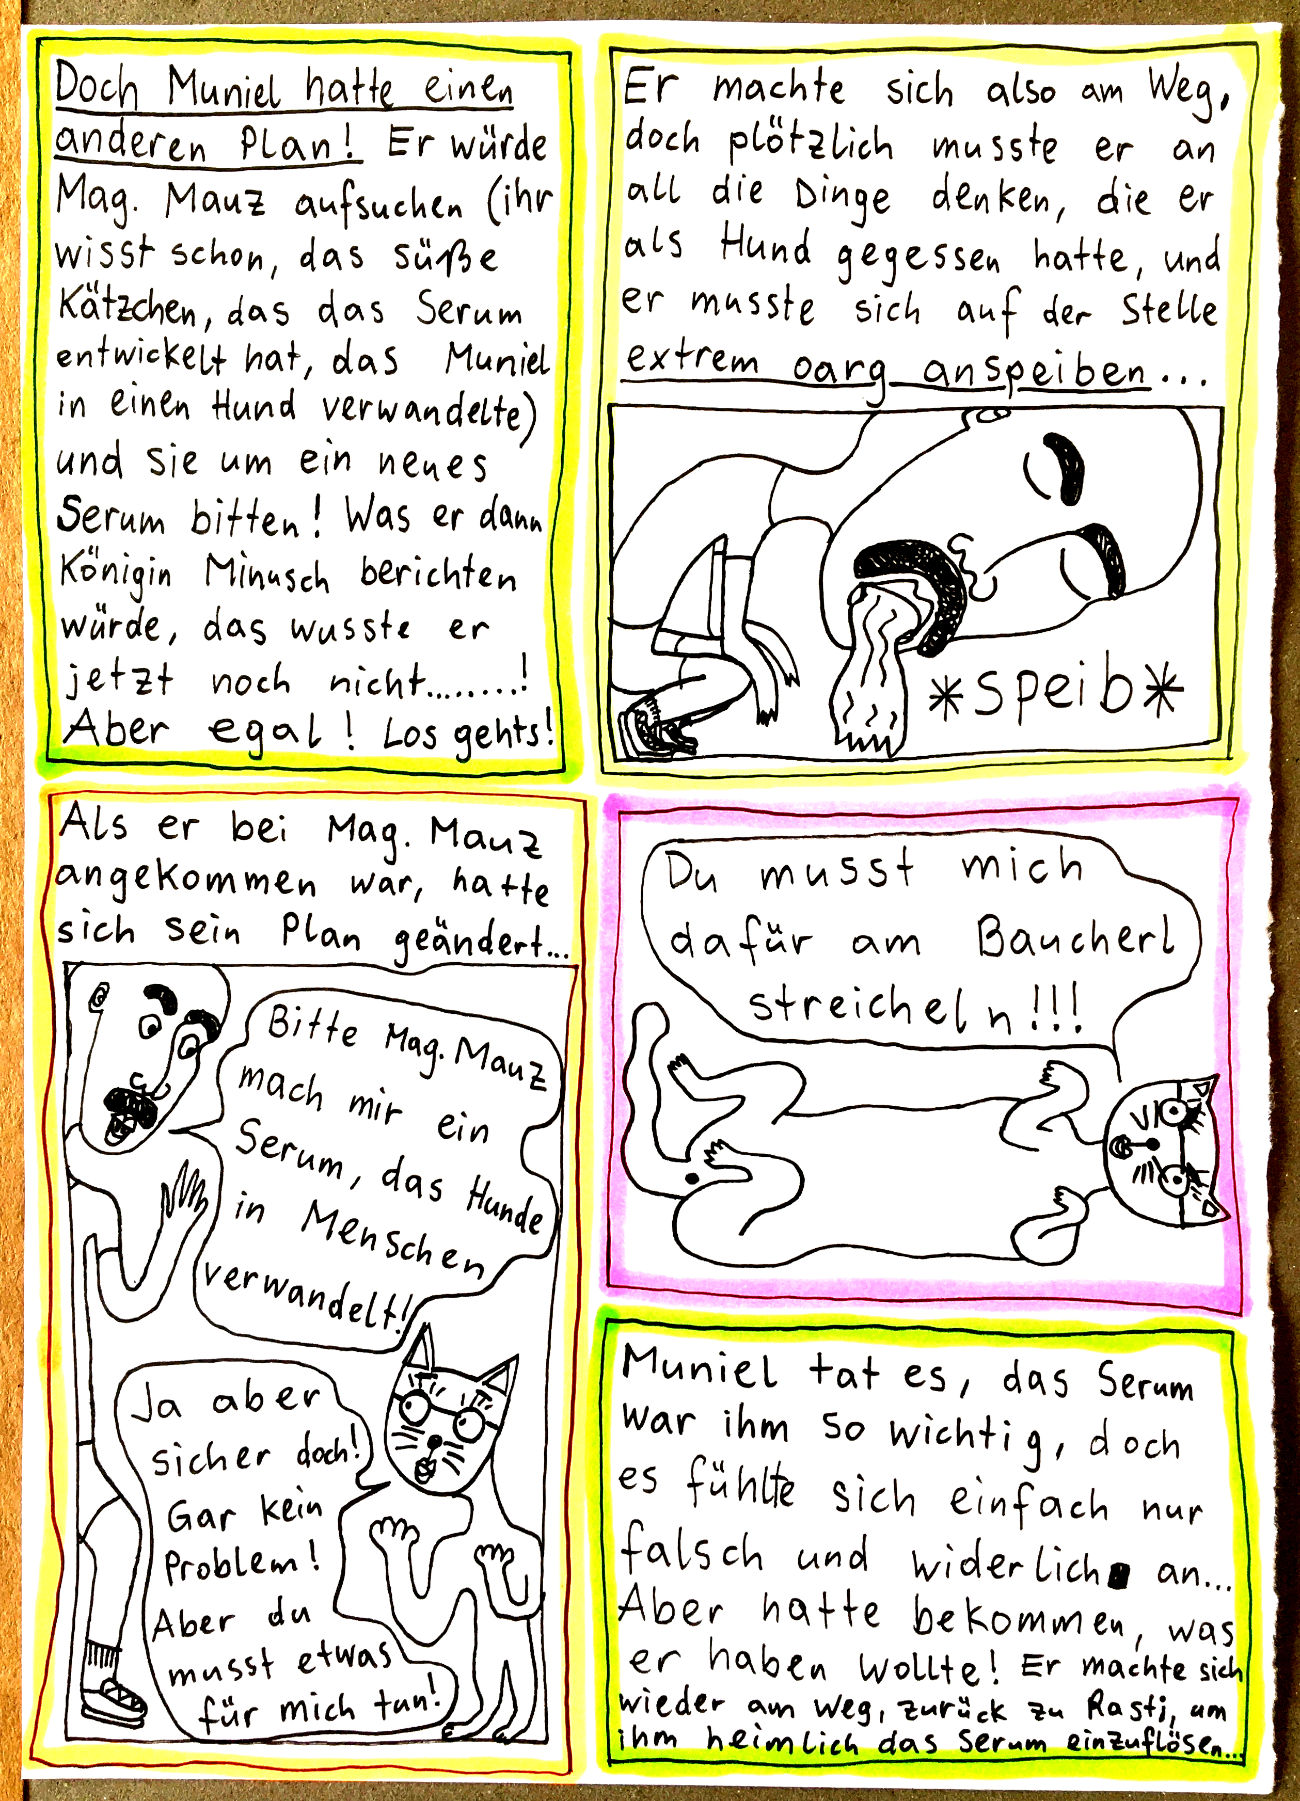 Doch Muniel hatte einen
anderen Plan! Er würde
Mag. Mauz aufsuchen (ihr
wisst schon, das süße
Kätzchen, das das Serum
entwickelt hat, das Muniel
in einen Hund verwandelte)
und sie um ein neues
Serum bitten! Was er dann
Königin Minusch berichten
würde, das wusste er
jetzt noch nicht........!
Aber egal! Los gehts!
Er machte sich also am Weg,
doch plötzlich musste er an
all die Dinge denken, die er
als Hund gegessen hatte, und
er musste sich auf der Stelle
extrem oarg anspeiben...
*speib*
Als er bei Mag. Mauz
angekommen war, hatte
sich sein Plan geändert...
Bitte Mag. Mauz
mach mir ein
Serum, das Hunde
in Menschen
verwandelt!
Ja aber
sicher doch!
Gar kein
Problem!
Aber du
musst etwas
für mich tun!
Du musst mich
dafür am Baucherl
streicheln!!!
Muniel tat es, das Serum
war ihm so wichtig, doch
es fühlte sich einfach nur
falsch und widerlich an...
Aber hatte bekommen, was
er haben wollte! Er machte sich
wieder am Weg, zurück zu Rasti, um
ihm heimlich das Serum einzuflösen...